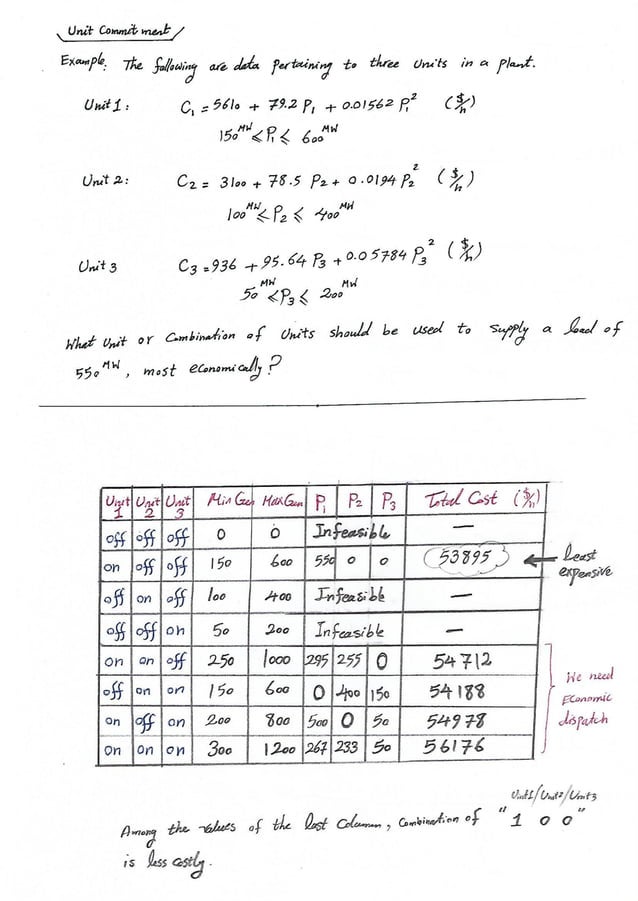 Unit Commitment
Example: The following are data pertaining to three Units in a plant.
Unit 1: C₁ = 5610 + 79.2 P₁ + 0.01562 P₁² ($/h)
150ᴹᵂ ≤ P₁ ≤ 600ᴹᵂ
Unit 2: C₂ = 3100 + 78.5 P₂ + 0.0194 P₂² ($/h)
100ᴹᵂ ≤ P₂ ≤ 400ᴹᵂ
Unit 3 C₃ = 936 + 95.64 P₃ + 0.05784 P₃² ($/h)
50ᴹᵂ ≤ P₃ ≤ 200ᴹᵂ
What Unit or Combination of Units should be used to supply a load of
550ᴹᵂ, most economically?
Unit 1 Unit 2 Unit 3 Min Gen Max Gen P₁ P₂ P₃ Total Cost ($/h)
off off off 0 0 Infeasible —
on off off 150 600 550 0 0 53895 ← Least expensive
off on off 100 400 Infeasible —
off off on 50 200 Infeasible —
on on off 250 1000 295 255 0 54712
off on on 150 600 0 400 150 54188
on off on 200 800 500 0 50 54978
on on on 300 1200 267 233 50 56176
We need
Economic
dispatch
Unit1/Unit2/Unit3
Among the values of the last Column, Combination of "1 0 0"
is less costly.